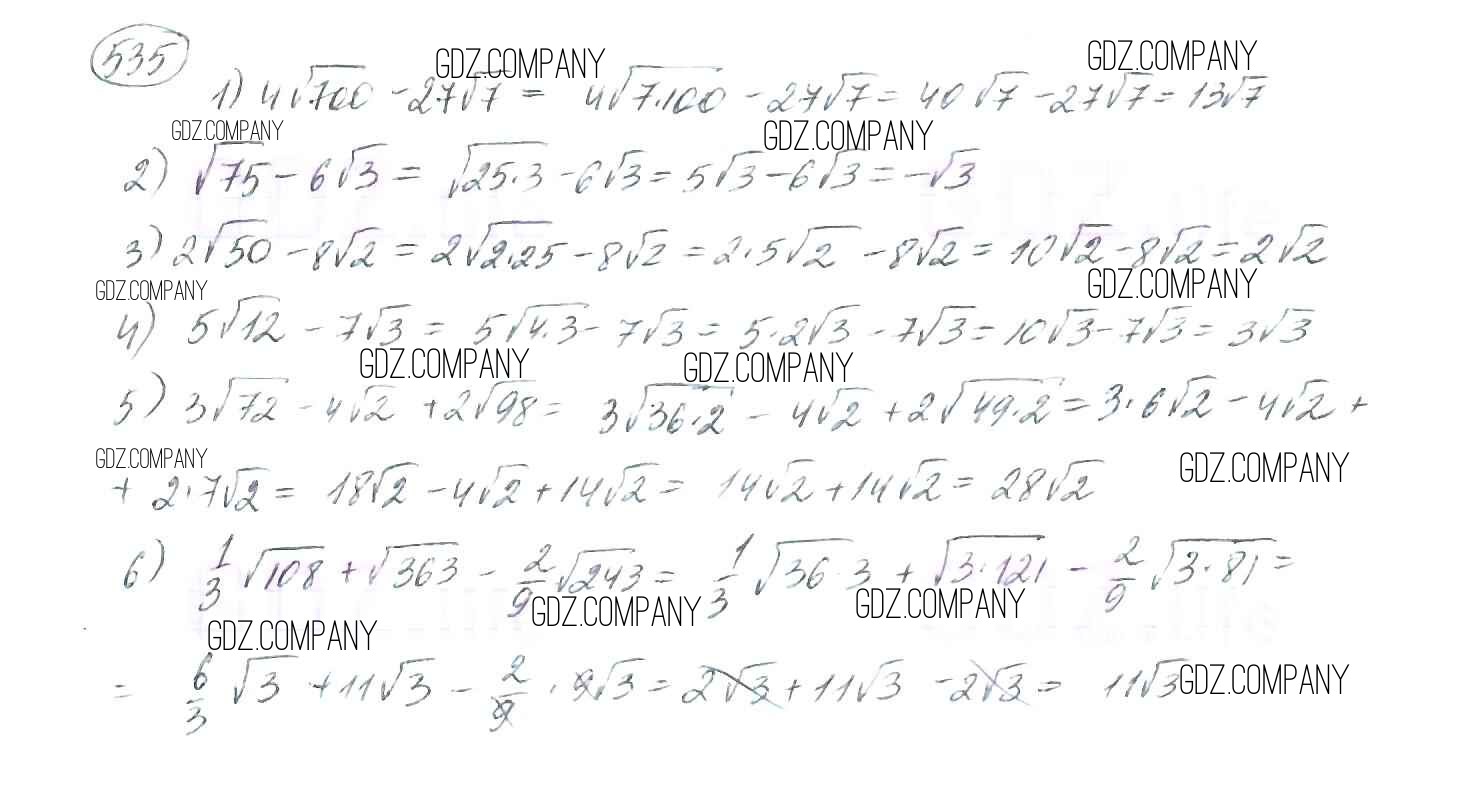 535
GDZ.COMPANY GDZ.COMPANY
1) 4√700 - 27√7 = 4√7·100 - 27√7 = 40√7 - 27√7 = 13√7
GDZ.COMPANY GDZ.COMPANY
2) √75 - 6√3 = √25·3 - 6√3 = 5√3 - 6√3 = -√3
3) 2√50 - 8√2 = 2√2·25 - 8√2 = 2·5√2 - 8√2 = 10√2 - 8√2 = 2√2
GDZ.COMPANY GDZ.COMPANY
4) 5√12 - 7√3 = 5√4·3 - 7√3 = 5·2√3 - 7√3 = 10√3 - 7√3 = 3√3
GDZ.COMPANY GDZ.COMPANY
5) 3√72 - 4√2 + 2√98 = 3√36·2 - 4√2 + 2√49·2 = 3·6√2 - 4√2 +
GDZ.COMPANY GDZ.COMPANY
+ 2·7√2 = 18√2 - 4√2 + 14√2 = 14√2 + 14√2 = 28√2
6) 1/3 √108 + √363 - 2/9 √243 = 1/3 √36·3 + √3·121 - 2/9 √3·81 =
GDZ.COMPANY GDZ.COMPANY GDZ.COMPANY
= 6/3 √3 + 11√3 - 2/9 · 9√3 = 2√3 + 11√3 - 2√3 = 11√3 GDZ.COMPANY